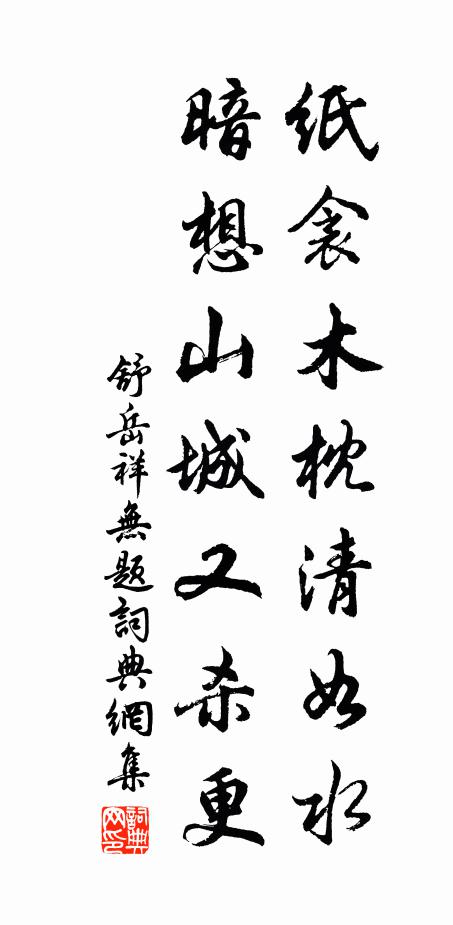 紙衾木枕清如水
暗想山城又杀更
舒岳祥無題詞典網集
詞典网印